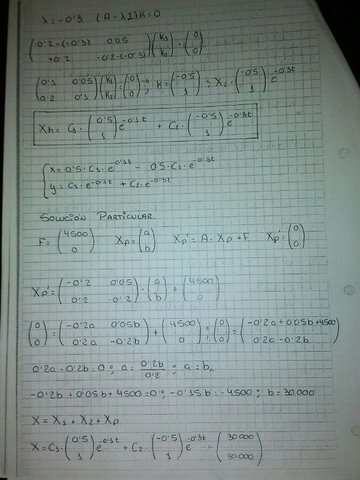 λ = -0'3 (A - λI)K = 0
(-0'2-(-0'3) 0'05; +0'2 -0'2-(-0'3)) (k₁; k₂) = (0; 0)
(0'1 0'05; 0'2 0'1) (k₁; k₂) = (0; 0) → K = (-0'5; 1) ; X₂ = (-0'5; 1) e^-0'3t
Xh = C₁ · (0'5; 1) e^-0'1t + C₂ · (-0'5; 1) e^-0'3t
{ x = 0'5 · C₁ · e^-0'1t - 0'5 · C₂ · e^-0'3t
y = C₁ · e^-0'1t + C₂ · e^-0'3t
SOLUCIÓN PARTICULAR
F = (4500; 0) Xp = (a; b) Xp' = A · Xp + F Xp' = (0; 0)
Xp' = (-0'2 0'05; 0'2 -0'2) · (a; b) + (4500; 0)
(0; 0) = (-0'2a 0'05b; 0'2a -0'2b) + (4500; 0) ; (0; 0) = (-0'2a + 0'05b + 4500; 0'2a - 0'2b)
0'2a - 0'2b = 0 ; a = 0'2b/0'2 ; a = b
-0'2b + 0'05b + 4500 = 0 ; -0'15b = -4500 ; b = 30.000
X = X₁ + X₂ + Xp
X = C₁ · (0'5; 1) e^-0'1t + C₂ · (-0'5; 1) e^-0'3t + (30.000; 30.000)